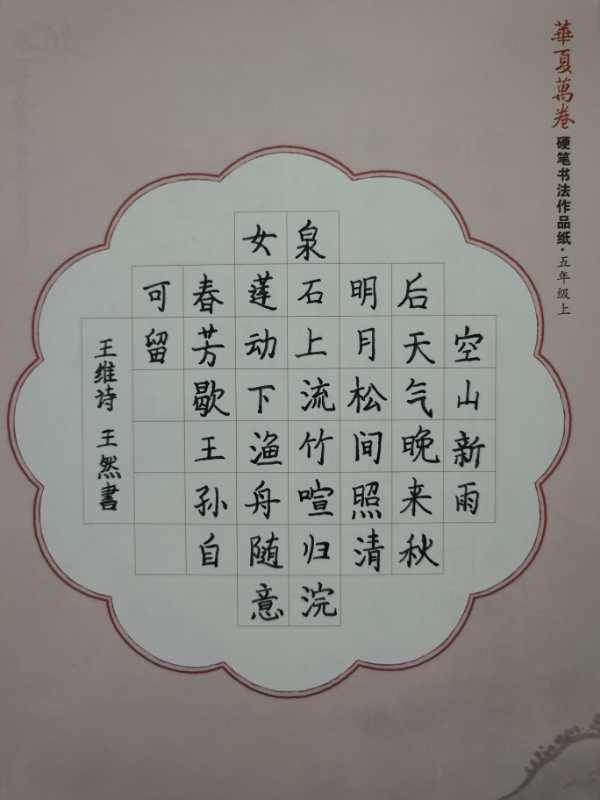 華夏萬卷 硬笔书法作品纸·五年级上
空山新雨
后天气晚来秋
明月松间照清
泉石上流竹喧归浣
女莲动下渔舟随意
春芳歇王孙自
可留
王维诗 王然書